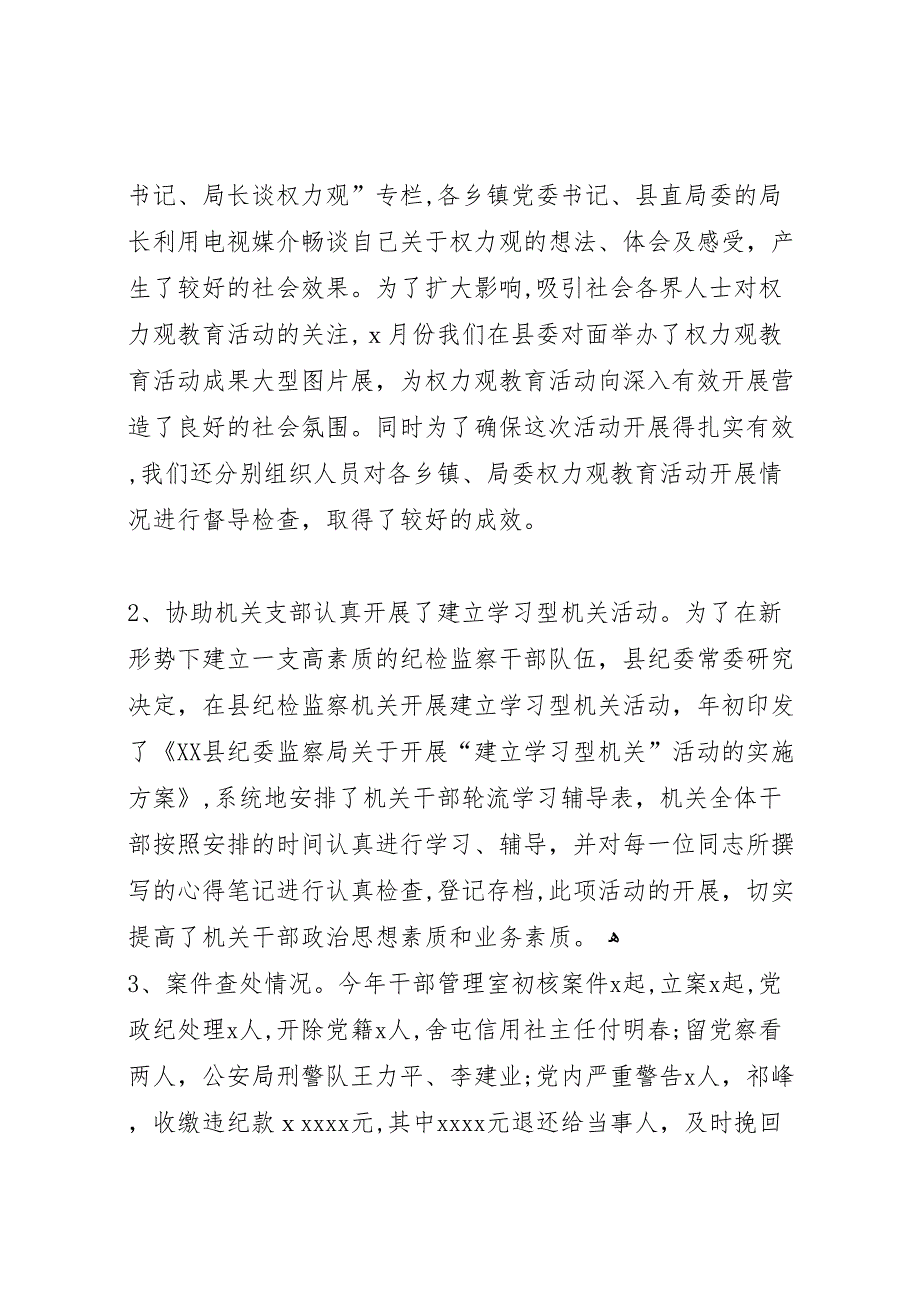 书记、局长谈权力观”专栏,各乡镇党委书记、县直局委的局
长利用电视媒介畅谈自己关于权力观的想法、体会及感受，产
生了较好的社会效果。为了扩大影响,吸引社会各界人士对权
力观教育活动的关注,x月份我们在县委对面举办了权力观教
育活动成果大型图片展，为权力观教育活动向深入有效开展营
造了良好的社会氛围。同时为了确保这次活动开展得扎实有效
,我们还分别组织人员对各乡镇、局委权力观教育活动开展情
况进行督导检查，取得了较好的成效。
2、协助机关支部认真开展了建立学习型机关活动。为了在新
形势下建立一支高素质的纪检监察干部队伍，县纪委常委研究
决定，在县纪检监察机关开展建立学习型机关活动，年初印发
了《XX县纪委监察局关于开展“建立学习型机关”活动的实施
方案》,系统地安排了机关干部轮流学习辅导表，机关全体干
部按照安排的时间认真进行学习、辅导，并对每一位同志所撰
写的心得笔记进行认真检查,登记存档,此项活动的开展，切实
提高了机关干部政治思想素质和业务素质。 ﻫ
3、案件查处情况。今年干部管理室初核案件x起,立案x起,党
政纪处理x人,开除党籍x人,舍屯信用社主任付明春;留党察看
两人，公安局刑警队王力平、李建业;党内严重警告x人，祁峰
，收缴违纪款ｘxxxx元,其中xxxx元退还给当事人，及时挽回